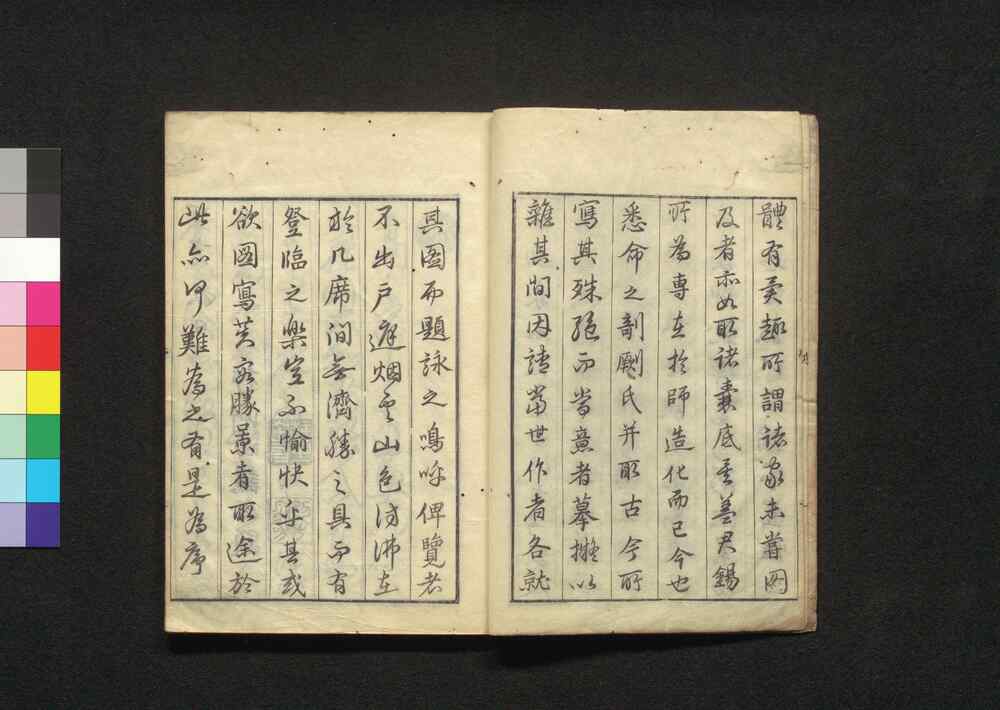 體有異趣所謂諸家未嘗罔
及者亦如取諸囊底至盖君錫
所為專在於師造化而已今也
悉命之剞劂氏并取古今所
寫其殊絕而當意者摹擬以
雜其間因請當世作者各就
其圖而題詠之嗚呼俾覽者
不出戶庭烟雲山色彷彿在
於几席間無濟勝之具而有
登臨之樂豈不愉快乎其或
欲圖寫芙容勝景者取途於
此亦何難為之有是為序